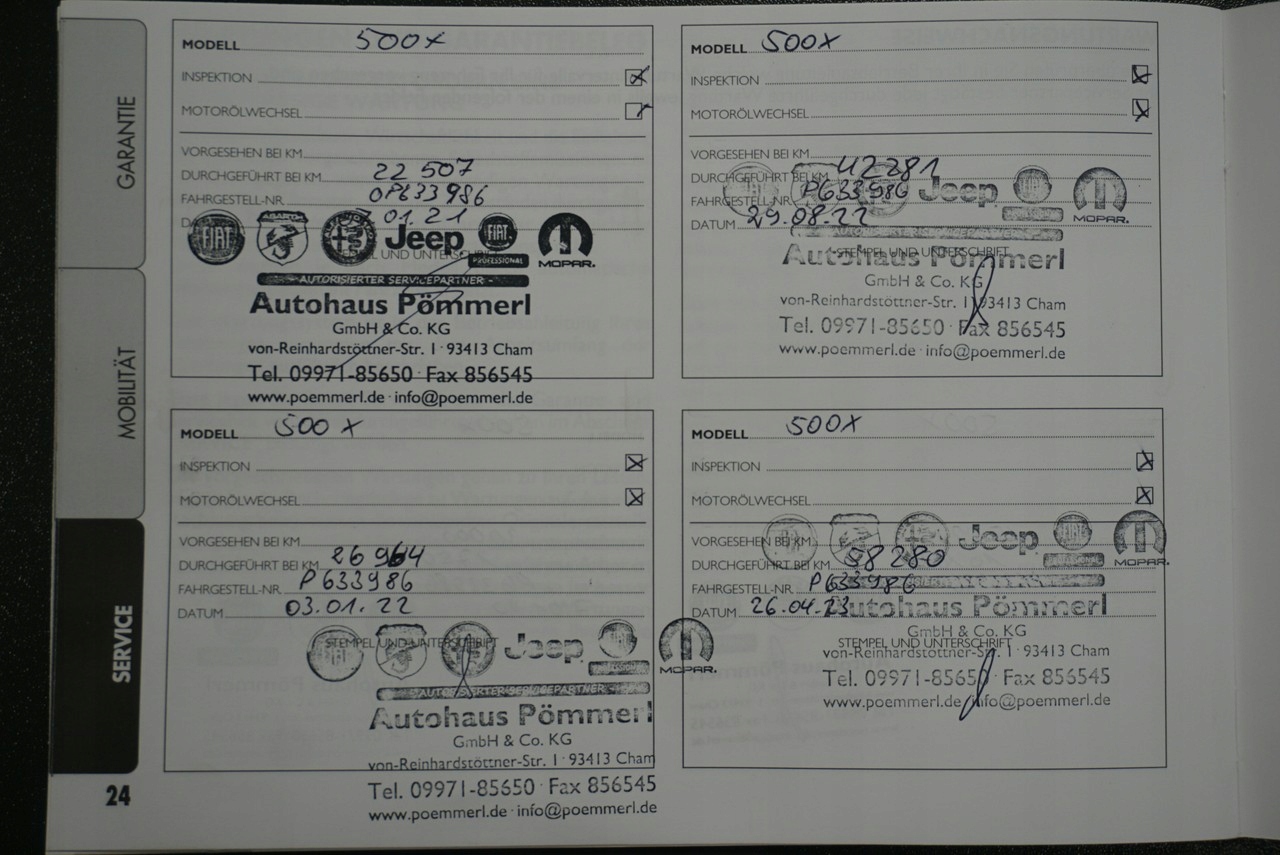 GARANTIE
MOBILITÄT
SERVICE
24
MODELL 500X
INSPEKTION
MOTORÖLWECHSEL
VORGESEHEN BEI KM
DURCHGEFÜHRT BEI KM 22 507
FAHRGESTELL-NR. 0P633986
01.21
FIAT ABARTH Jeep FIAT PROFESSIONAL MOPAR.
AUTORISIERTER SERVICEPARTNER
Autohaus Pömmerl
GmbH & Co. KG
von-Reinhardstöttner-Str. 1 · 93413 Cham
Tel. 09971-85650 · Fax 856545
www.poemmerl.de · info@poemmerl.de
MODELL 500X
INSPEKTION
MOTORÖLWECHSEL
VORGESEHEN BEI KM
DURCHGEFÜHRT BEI KM 42281
FAHRGESTELL-NR. P633986
Jeep MOPAR.
DATUM 29.08.22
STEMPEL UND UNTERSCHRIFT
Autohaus Pömmerl
GmbH & Co. KG
von-Reinhardstöttner-Str. 1 · 93413 Cham
Tel. 09971-85650 · Fax 856545
www.poemmerl.de · info@poemmerl.de
MODELL 500X
INSPEKTION
MOTORÖLWECHSEL
VORGESEHEN BEI KM
DURCHGEFÜHRT BEI KM 26964
FAHRGESTELL-NR. P633986
DATUM 03.01.22
STEMPEL UND UNTERSCHRIFT
Jeep MOPAR.
AUTORISIERTER SERVICEPARTNER
Autohaus Pömmerl
GmbH & Co. KG
von-Reinhardstöttner-Str. 1 · 93413 Cham
Tel. 09971-85650 · Fax 856545
www.poemmerl.de · info@poemmerl.de
MODELL 500X
INSPEKTION
MOTORÖLWECHSEL
VORGESEHEN BEI KM
Jeep FIAT MOPAR.
DURCHGEFÜHRT BEI KM 58280
FAHRGESTELL-NR. P633986
DATUM 26.04.23
Autohaus Pömmerl
GmbH & Co. KG
STEMPEL UND UNTERSCHRIFT
von-Reinhardstöttner-Str. 1 · 93413 Cham
Tel. 09971-85650 · Fax 856545
www.poemmerl.de · info@poemmerl.de